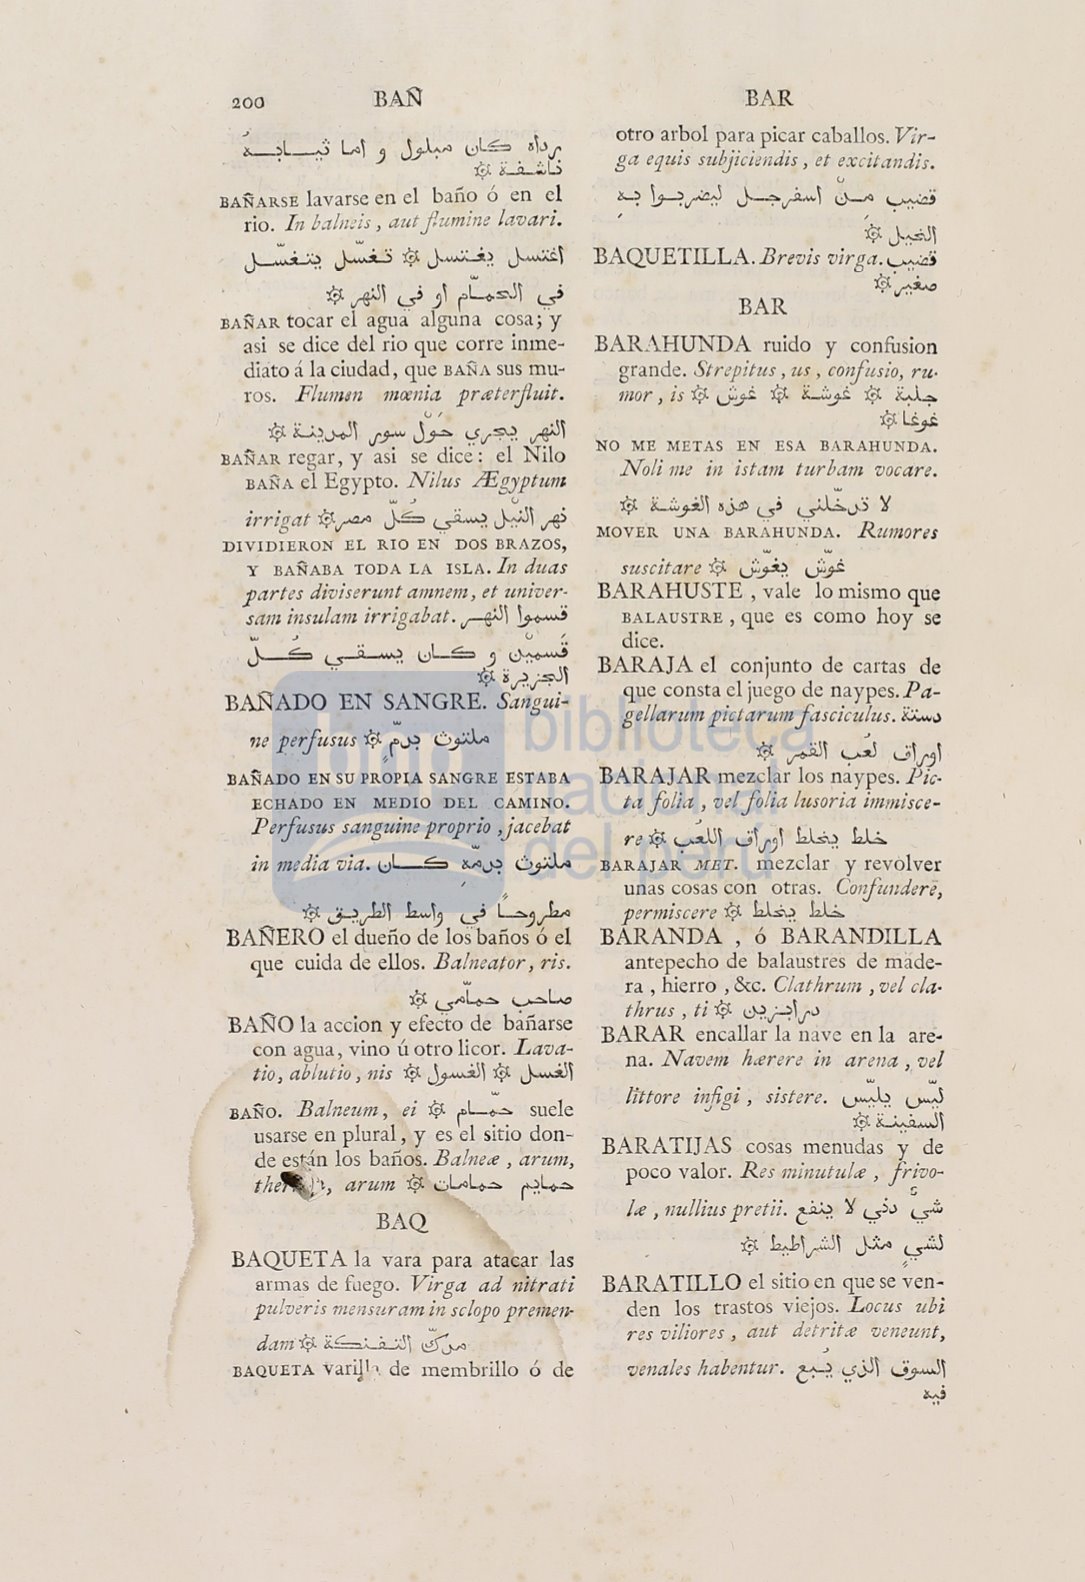 200
BAÑ
برداه كان مبلول و اما ثيـابـه
ناشفة ۞
BAÑARSE lavarse en el baño ó en el
rio. In balneis, aut flumine lavari.
اغتسل يغتسل ۞ تغسّل يتغسّل
في الحمّام او في النهر ۞
BAÑAR tocar el agua alguna cosa; y
asi se dice del rio que corre inme-
diato á la ciudad, que BAÑA sus mu-
ros. Flumen mœnia præterfluit.
النهر يجري حول سور المدينة ۞
BAÑAR regar, y asi se dice: el Nilo
BAÑA el Egypto. Nilus Ægyptum
irrigat نهر النيل يسقي كُلّ مصر ۞
DIVIDIERON EL RIO EN DOS BRAZOS,
Y BAÑABA TODA LA ISLA. In duas
partes diviserunt amnem, et univer-
sam insulam irrigabat. قسموا النهر
قسمين و كان يسقي كُلّ
الجزيرة ۞
BAÑADO EN SANGRE. Sangui-
ne perfusus ملتوث بدمٍّ ۞
BAÑADO EN SU PROPIA SANGRE ESTABA
ECHADO EN MEDIO DEL CAMINO.
Perfusus sanguine proprio, jacebat
in media via. ملتوث بدمّه كان
مطروحاً في واسط الطريق ۞
BAÑERO el dueño de los baños ó el
que cuida de ellos. Balneator, ris.
صاحب حمّامي ۞
BAÑO la accion y efecto de bañarse
con agua, vino ú otro licor. Lava-
tio, ablutio, nis الغسل ۞ الغسول ۞
BAÑO. Balneum, ei ۞ حمّام suele
usarse en plural, y es el sitio don-
de están los baños. Balneæ, arum,
arum حمايم حمامات ۞
BAQ
BAQUETA la vara para atacar las
armas de fuego. Virga ad nitrati
pulveris mensuram in sclopo premen-
dam مدكّ التفنكة ۞
BAQUETA varilla de membrillo ó de
BAR
otro arbol para picar caballos. Vir-
ga equis subjiciendis, et excitandis.
قضيب من اسفرجل ليضربوا به
الخيل ۞
BAQUETILLA. Brevis virga. قضيب
صغير ۞
BAR
BARAHUNDA ruido y confusion
grande. Strepitus, us, confusio, ru-
mor, is جلبة ۞ غوشة ۞ غوش ۞
غوغا ۞
NO ME METAS EN ESA BARAHUNDA.
Noli me in istam turbam vocare.
لا تدخّلني في هذه الغوشة ۞
MOVER UNA BARAHUNDA. Rumores
suscitare غوّش يغوّش ۞
BARAHUSTE, vale lo mismo que
BALAUSTRE, que es como hoy se
dice.
BARAJA el conjunto de cartas de
que consta el juego de naypes. Pa-
gellarum pictarum fasciculus. دستة
اوراق لعب القمر ۞
BARAJAR mezclar los naypes. Pic-
ta folia, vel folia lusoria immisce-
re خلط يخلط اوراق اللعب ۞
BARAJAR MET. mezclar y revolver
unas cosas con otras. Confundere,
permiscere خلط يخلط ۞
BARANDA, ó BARANDILLA
antepecho de balaustres de made-
ra, hierro, &c. Clathrum, vel cla-
thrus, ti درابزين ۞
BARAR encallar la nave en la are-
na. Navem hærere in arena, vel
littore infigi, sistere. ليّس يليّس
السفينة ۞
BARATIJAS cosas menudas y de
poco valor. Res minutulæ, frivo-
læ, nullius pretii. شي دني لا ينفع
لشيٍ مثل الشراطيط ۞
BARATILLO el sitio en que se ven-
den los trastos viejos. Locus ubi
res viliores, aut detritæ veneunt,
venales habentur. السوق الذي يُبع
فيه